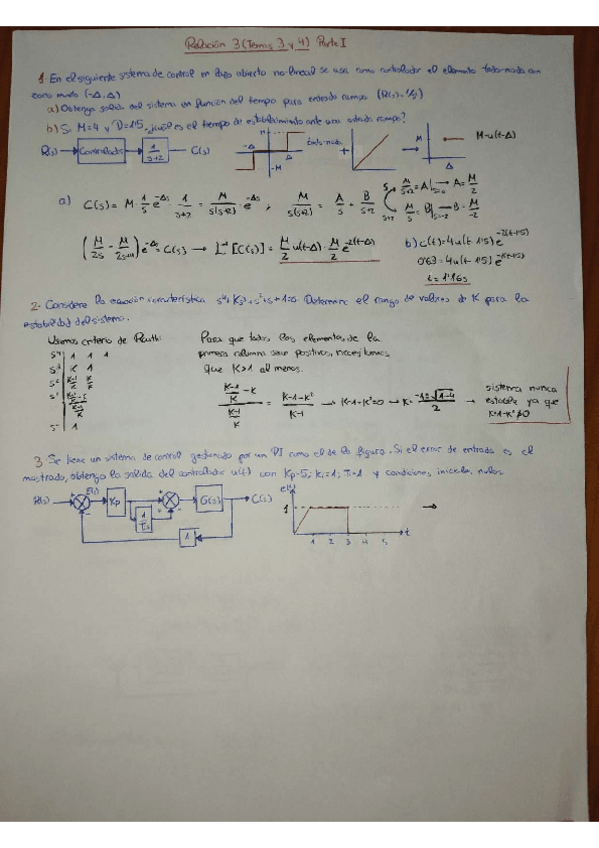 Relación 3 (Temas 3 y 4) Parte I
1. En el siguiente sistema de control en lazo abierto no lineal se usa como controlador el elemento todo-nada con
zona muerta (-Δ, Δ)
a) Obtenga salida del sistema en función del tiempo para entrada rampa (R(s)=1/s²)
b) Si M=4 y D=1'5, ¿cuál es el tiempo de establecimiento ante una entrada rampa?
R(s) Controlador 1/(s+2) C(s)
M -Δ Δ -M todo-nada + = M Δ M·u(t-Δ)
a) C(s) = M · 1/s · e^-Δs · 1/(s+2) = M/(s(s+2)) e^-Δs ; M/(s(s+2)) = A/s + B/(s+2)
M/(s+2) = A|s=0 → A = M/2
M/s = B|s=-2 → B = M/-2
e^-Δs = C(s) → L^-1[C(s)] = M/2 u(t-Δ) · M/2 e^-2(t-Δ)
b) c(t) = 4u(t-1'5) e^-2(t-1'5)
0'63 = 4u(t-1'5)
t = 1'16s
2. Considere la ecuación característica s⁴+Ks³+s²+s+1=0. Determine el rango de valores de K para la
estabilidad del sistema.
Usamos criterio de Routh:
s⁴ 1 1 1
s³ K 1
s² (K-1)/K K/K
s¹
s⁰ 1
Para que todos los elementos de la
primera columna sean positivos, necesitamos
que K>1 al menos.
((K-1)/K - K)/((K-1)/K) = (K-1-K²)/(K-1) → K-1-K²=0 → K = (-1±√(1-4))/2 →
sistema nunca
estable ya que
K-1-K²≠0
3. Se tiene un sistema de control gestionado por un PI como el de la figura. Si el error de entrada es el
mostrado, obtenga la salida del controlador u(t) con Kp=5; Ki=1; Ti=1 y condiciones iniciales nulas.
R(s) + - E(s) Kp 1/Tis + G(s) C(s) 1
e(t) 1 1 2 3 4 5 t →